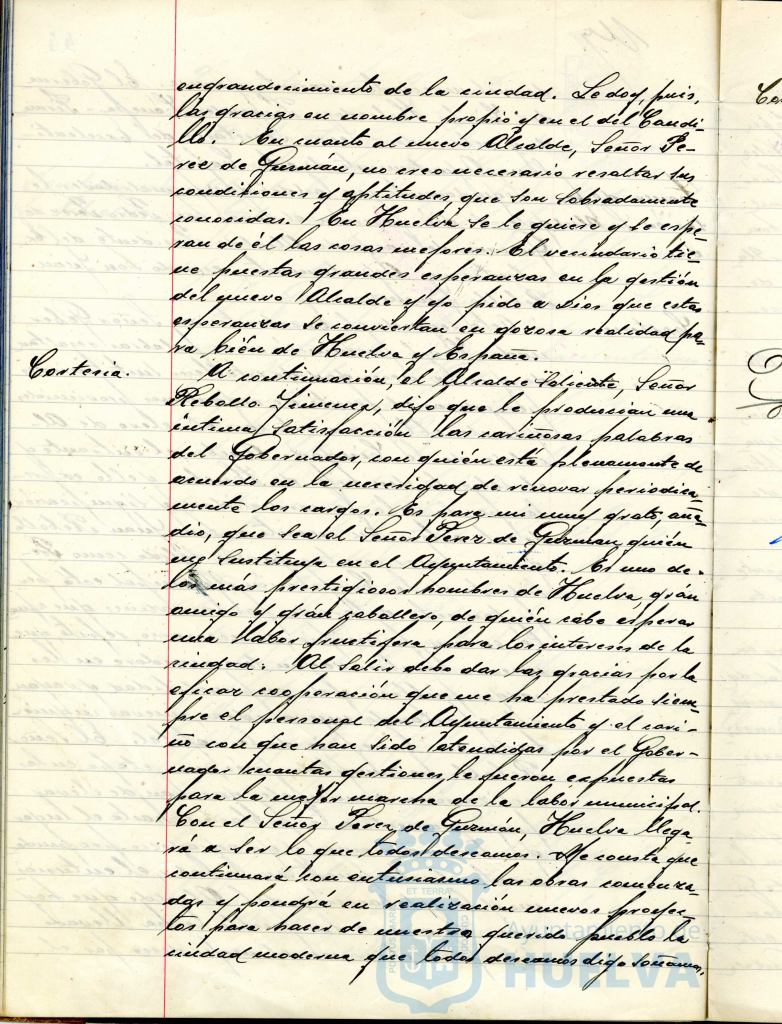 engrandecimiento de la ciudad. Le doy, pues,
las gracias en nombre propio y en el del Caudi-
llo. En cuanto al nuevo Alcalde, Señor Pe-
rez de Guzmán, no creo necesario resaltar sus
condiciones y aptitudes, que son sobradamente
conocidas. En Huelva se le quiere y se espe-
ran de él las cosas mejores. El vecindario tie-
ne puestas grandes esperanzas en la gestión
del nuevo Alcalde y yo pido a Dios que estas
esperanzas se conviertan en gozosa realidad pa-
ra bién de Huelva y España.
Cortesia.
A continuación, el Alcalde saliente, Señor
Rebollo Jimenez, dijo que le producian una
intima satisfacción las cariñosas palabras
del Gobernador, con quién está plenamente de
acuerdo en la necesidad de renovar periodica-
mente los cargos. Es para mi muy grato, aña-
dio, que sea el Señor Perez de Guzman quién
me sustituya en el Ayuntamiento. Es uno de
los más prestigiosos hombres de Huelva, grán
amigo y grán caballero, de quién cabe esperar
una labor fructifera para los intereses de la
ciudad. Al salir debo dar las gracias por la
eficaz cooperación que me ha prestado siem-
pre el personal del Ayuntamiento y el cari-
ño con que han sido atendidas por el Gober-
nador cuantas gestiones le fueron expuestas
para la mejor marcha de la labor municipal.
Con el Señor Perez de Guzmán, Huelva llega-
rá a ser lo que todos deseamos. Me consta que
continuará con entusiasmo las obras comenza-
das y pondrá en realización nuevos proyec-
tos para hacer de nuestro querido pueblo la
ciudad moderna que todos deseamos digo soñamos.
ET TERRA
Ayuntamiento de
HUELVA